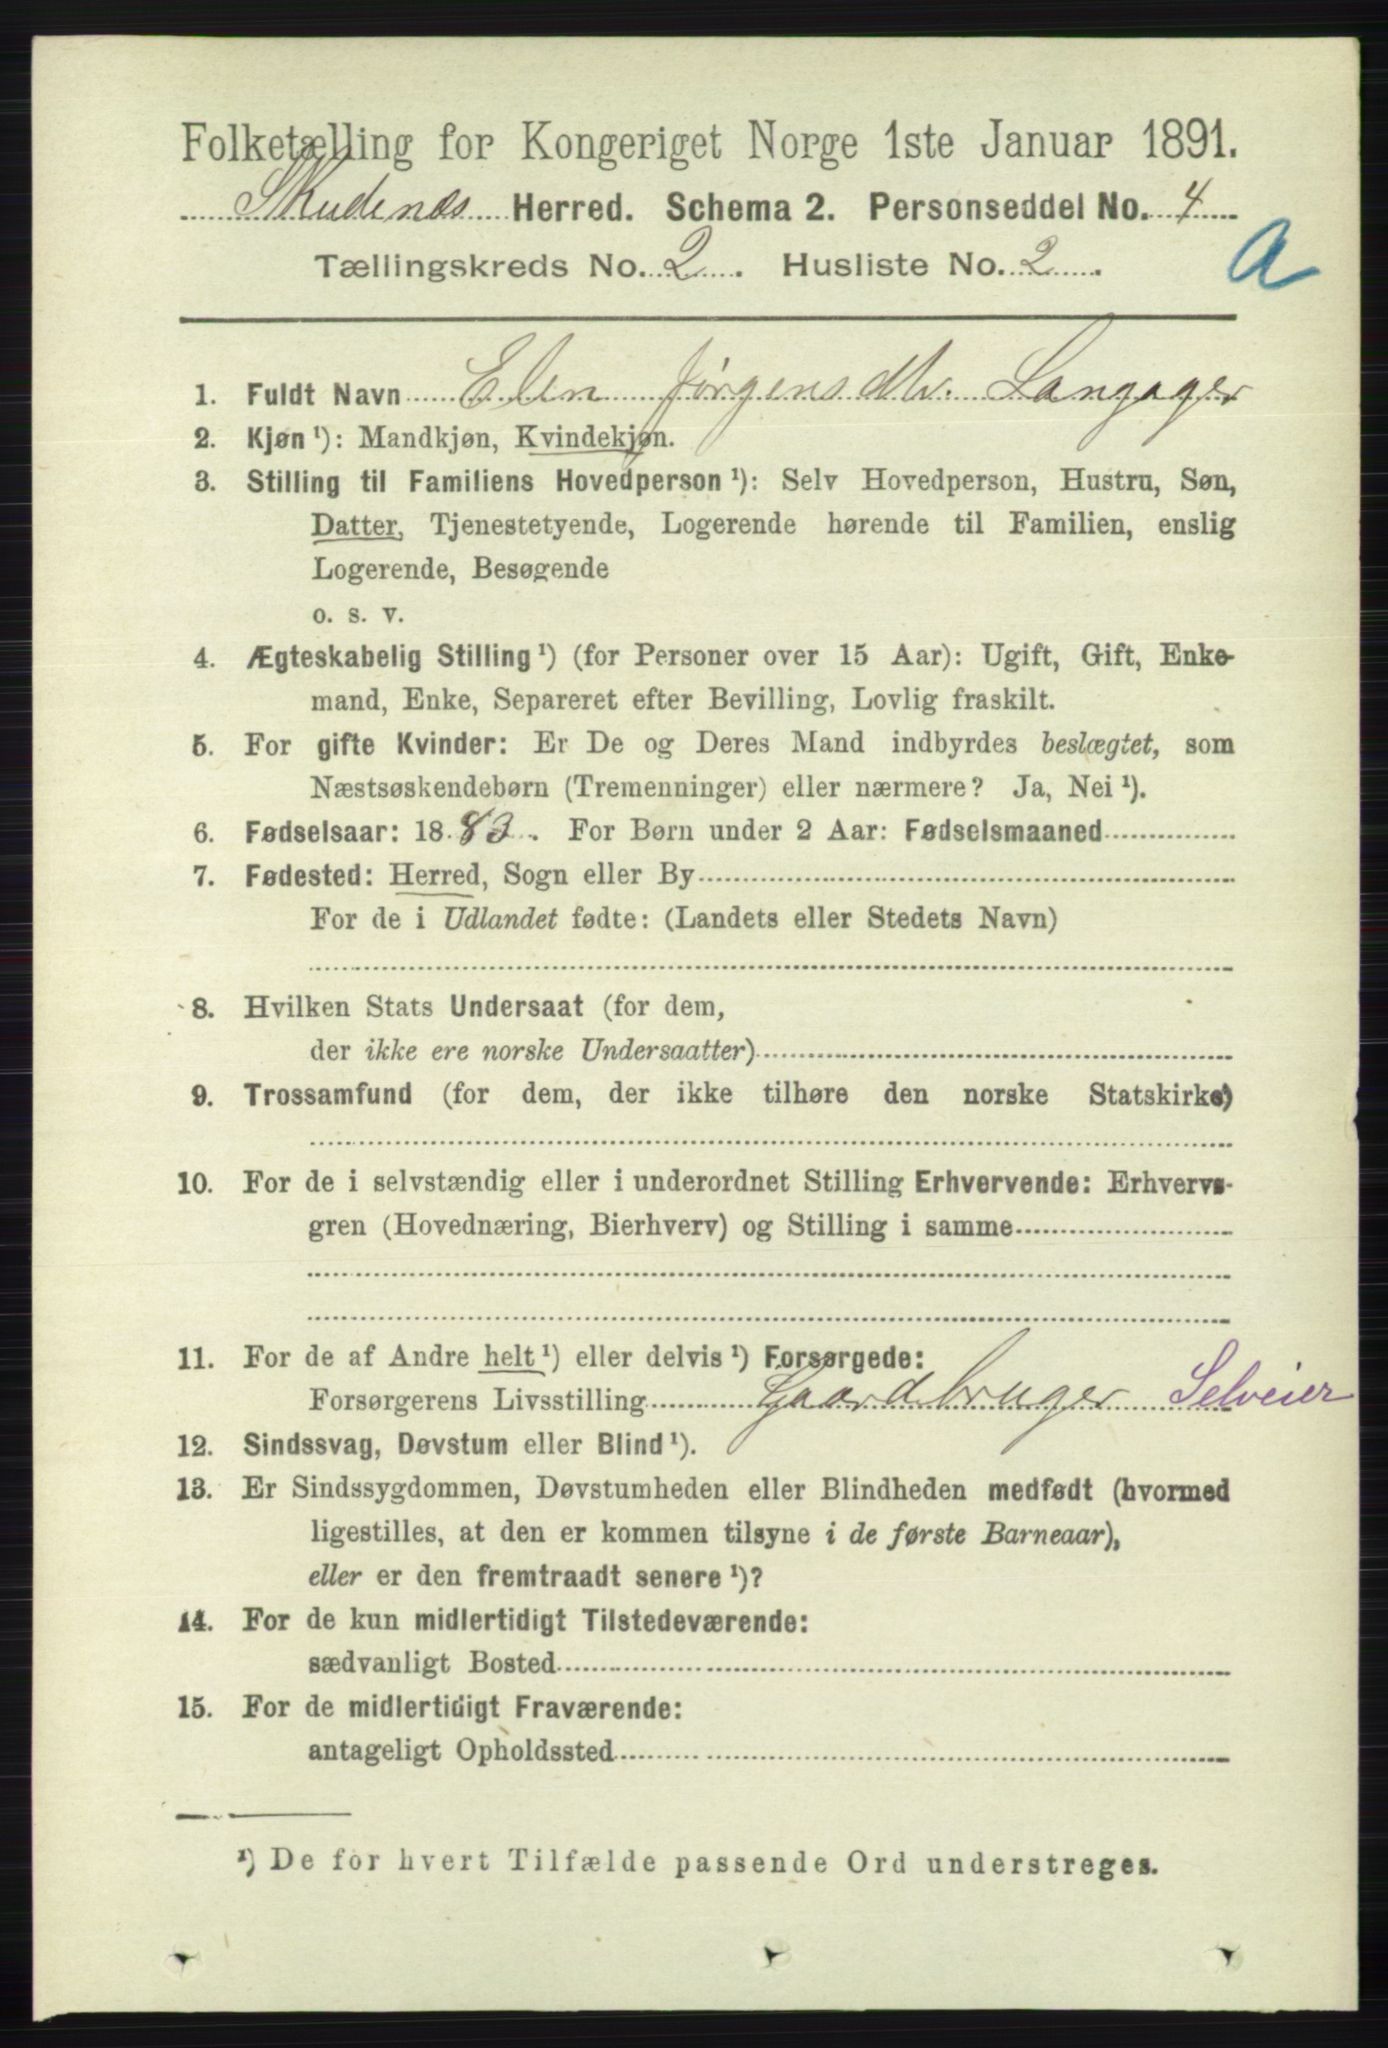 Folketælling for Kongeriget Norge 1ste Januar 1891.
Skudenæs Herred. Schema 2. Personseddel No. 4
Tællingskreds No. 2. Husliste No. 2.
A
1. Fuldt Navn Elen Jørgensdtr. Langager
2. Kjøn ¹): Mandkjøn, Kvindekjøn.
3. Stilling til Familiens Hovedperson ¹): Selv Hovedperson, Hustru, Søn,
Datter, Tjenestetyende, Logerende hørende til Familien, enslig
Logerende, Besøgende
o. s. v.
4. Ægteskabelig Stilling ¹) (for Personer over 15 Aar): Ugift, Gift, Enke-
mand, Enke, Separeret efter Bevilling, Lovlig fraskilt.
5. For gifte Kvinder: Er De og Deres Mand indbyrdes beslægtet, som
Næstsøskendebørn (Tremenninger) eller nærmere? Ja, Nei ¹).
6. Fødselsaar: 1883. For Børn under 2 Aar: Fødselsmaaned
7. Fødested: Herred, Sogn eller By
For de i Udlandet fødte: (Landets eller Stedets Navn)
8. Hvilken Stats Undersaat (for dem,
der ikke ere norske Undersaatter)
9. Trossamfund (for dem, der ikke tilhøre den norske Statskirke)
10. For de i selvstændig eller i underordnet Stilling Erhvervende: Erhvervs-
gren (Hovednæring, Bierhverv) og Stilling i samme
11. For de af Andre helt ¹) eller delvis ¹) Forsørgede:
Forsørgerens Livsstilling Gaardbruger Selveier
12. Sindssvag, Døvstum eller Blind ¹).
13. Er Sindssygdommen, Døvstumheden eller Blindheden medfødt (hvormed
ligestilles, at den er kommen tilsyne i de første Barneaar),
eller er den fremtraadt senere ¹)?
14. For de kun midlertidigt Tilstedeværende:
sædvanligt Bosted
15. For de midlertidigt Fraværende:
antageligt Opholdssted
¹) De for hvert Tilfælde passende Ord understreges.